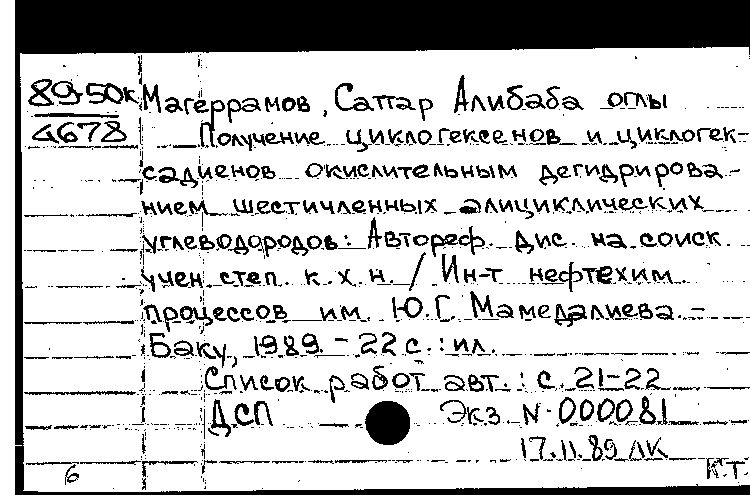 89-50к Магеррамов, Саттар Алибаба оглы
4678 Получение циклогексенов и циклогек-
садиенов окислительным дегидрирова-
нием шестичленных алициклических
углеводородов: Автореф. дис. на соиск
учен. степ. к. х. н. / Ин-т нефтехим.
процессов им. Ю.Г. Мамедалиева. -
Баку, 1989. - 22 с. : ил.
Список работ авт. : с. 21-22
ДСП Экз N 000081
17.11.89 ЛК
6 К.Т.